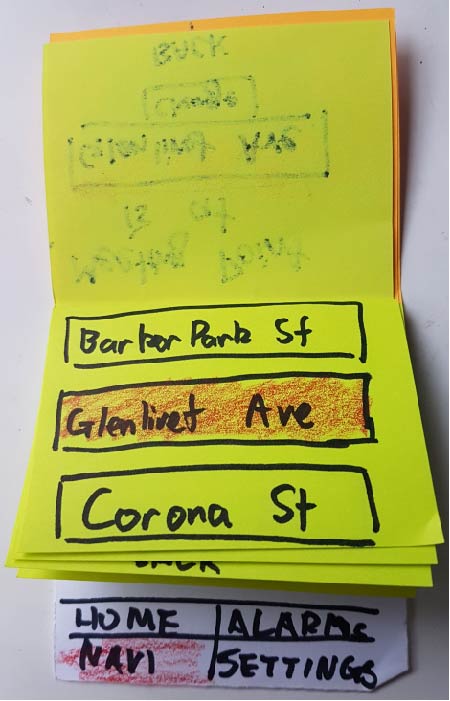 BACK
Change
Glenlivet Ave
is at
Meeting Point
Barker Park St
Glenlivet Ave
Corona St
BACK
HOME ALARMS
NAVI SETTINGS